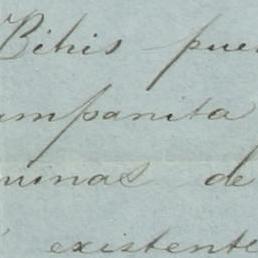 Bihis pue
ampanita
minas de
existente